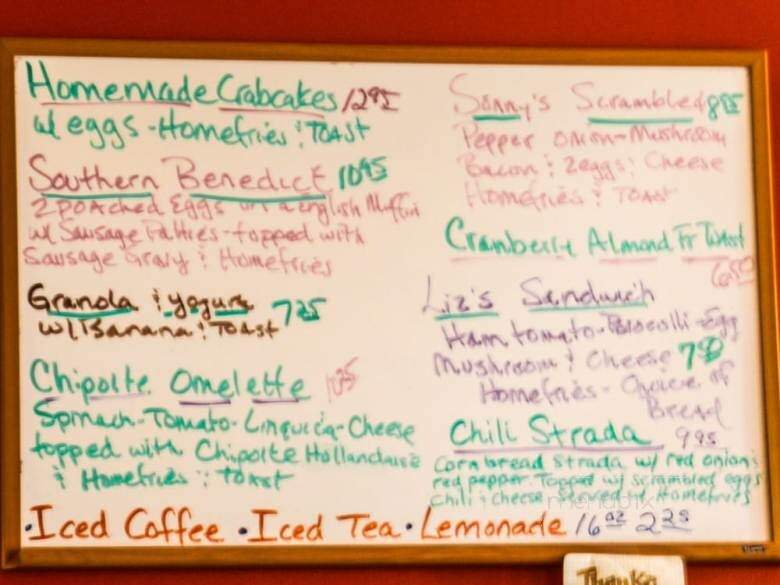 Homemade Crabcakes 12.95
w/ eggs - Homefries & Toast
Southern Benedict 10.95
2 poached Eggs on a English Muffin
w/ Sausage Patties - topped with
Sausage Gravy & Homefries
Granola & yogurt 7.25
w/ Banana & Toast
Chipolte Omelette
Spinach - Tomato - Linguica - Cheese
topped with Chipolte Hollandaise
& Homefries & toast
Sonny's Scrambled 8.95
Pepper onion - Mushroom
Bacon & 2 eggs & Cheese
Homefries & Toast
Cranberry Almond Fr Toast
6.50
Liz's Sandwich
Ham tomato - Brocolli - Egg
Mushroom & Cheese
Homefries - Choice of
Bread
Chili Strada 9.95
Cornbread Strada w/ red onion &
red pepper. Topped w/ scrambled eggs
Chili & cheese served w/ Homefries
• Iced Coffee • Iced Tea • Lemonade 16 oz 2.25
Thanks